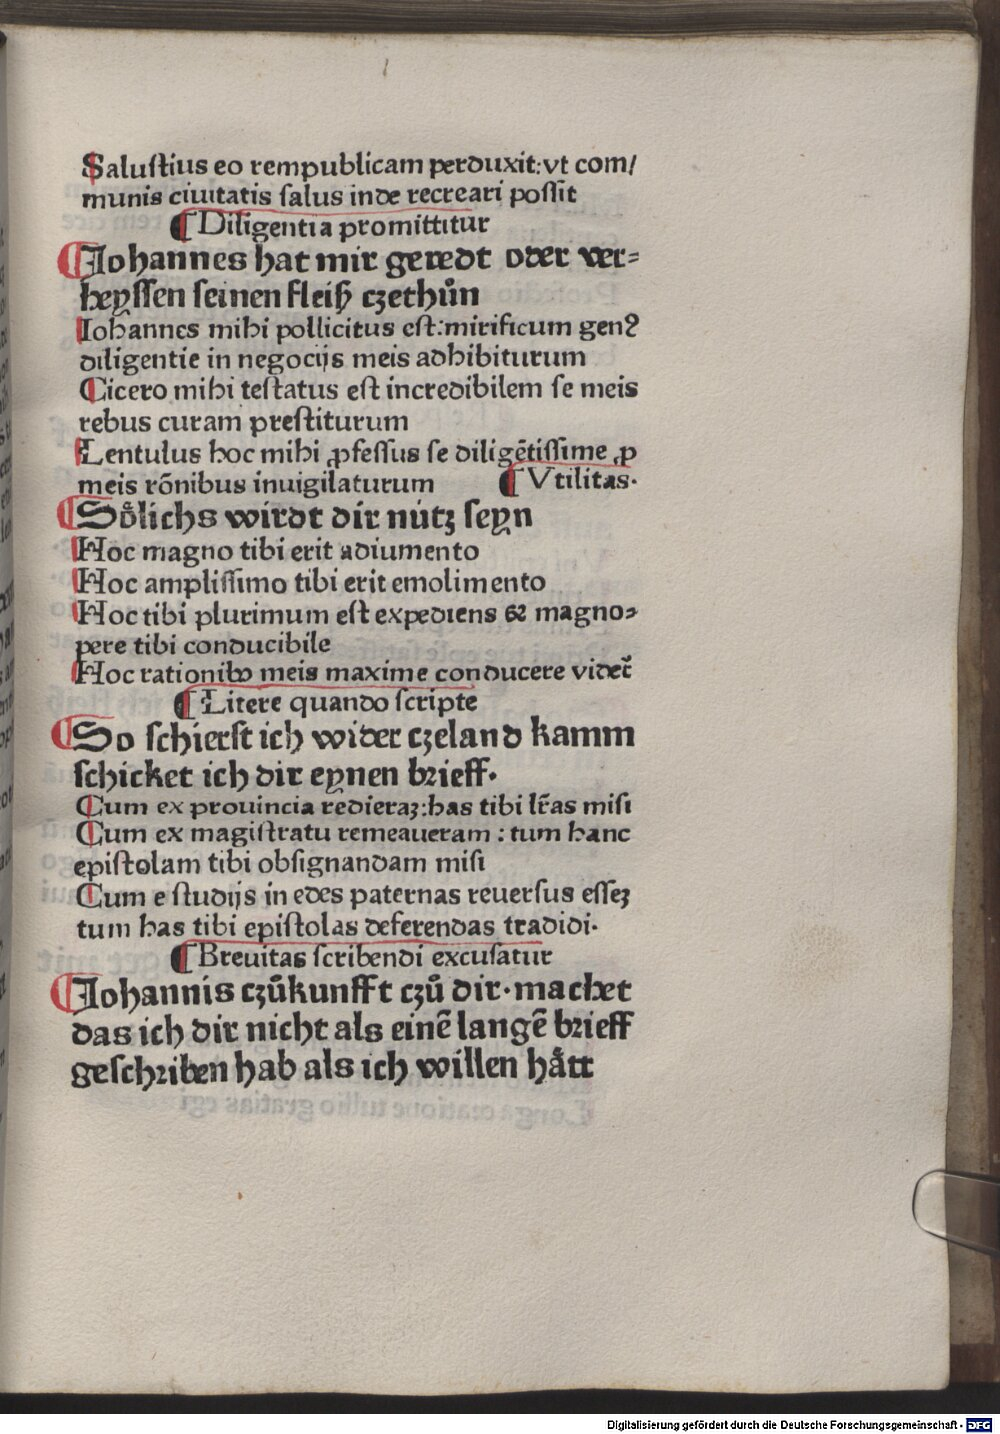 Saluſtius eo rempublicam perduxit: vt com/
munis ciuitatis ſalus inde recreari poſſit
¶ Diligentia promittitur
¶ Johannes hat mir geredt oder ver⸗
heyſſen ſeinen fleiß czethůn
Iohannes mihi pollicitus eſt: mirificum genꝰ
diligentie in negocijs meis adhibiturum
Cicero mihi teſtatus eſt incredibilem ſe meis
rebus curam preſtiturum
Lentulus hoc mihi ꝓfeſſus ſe diligẽtiſſime ꝓ
meis rõnibus inuigilaturum ¶ Vtilitas.
¶ Sőlichs wirdt dir nútz ſeyn
Hoc magno tibi erit adiumento
Hoc ampliſſimo tibi erit emolimento
Hoc tibi plurimum eſt expediens & magno⸗
pere tibi conducibile
Hoc rationibꝰ meis maxime conducere videt᷑
¶ Litere quando ſcripte
¶ So ſchierſt ich wider czeland kamm
ſchicket ich dir eynen brieff.
Cum ex prouincia redieraꝫ: has tibi lr̃as miſi
Cum ex magiſtratu remeaueram : tum hanc
epiſtolam tibi obſignandam miſi
Cum e ſtudijs in edes paternas reuerſus eſſeꝫ
tum has tibi epiſtolas deferendas tradidi.
¶ Breuitas ſcribendi excuſatur
¶ Johannis czůkunfft czů dir. machet
das ich dir nicht als einẽ langẽ brieff
geſchriben hab als ich willen hått
Digitalisierung gefördert durch die Deutsche Forschungsgemeinschaft - DFG